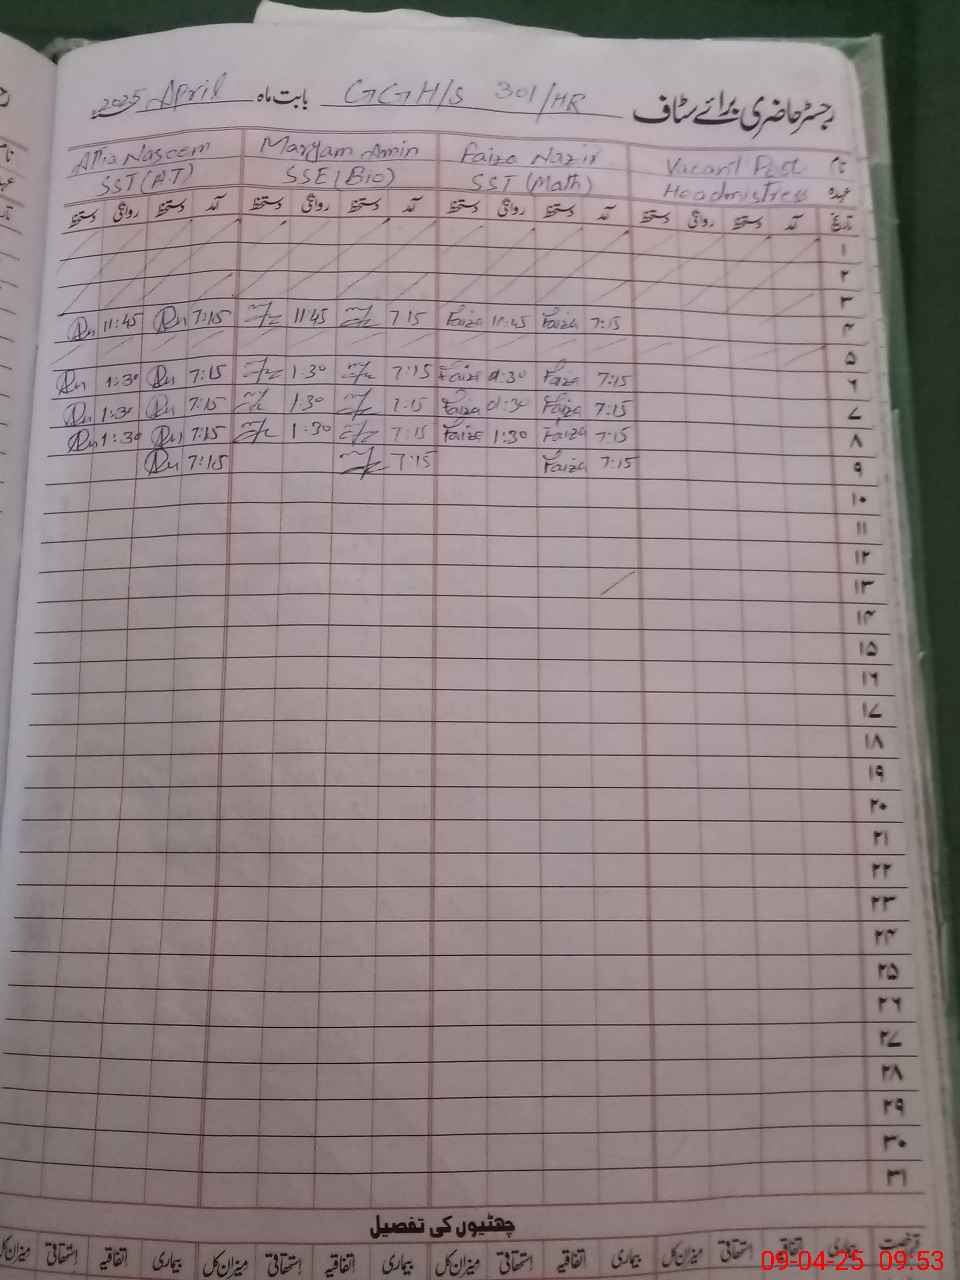 رجسٹر حاضری برائے سٹاف GGH/S 301/HR بابت ماہ April 2025
نام Vacant Post Faiza Nazir Maryam Amin Attia Naseem
عہدہ Headmistress SST (Math) SSE (Bio) SST (AT)
تاریخ آمد دستخط روانگی دستخط آمد دستخط روانگی دستخط آمد دستخط روانگی دستخط آمد دستخط روانگی دستخط
۱
۲
۳
۴ 7:15 Faiza 11:45 Faiza 7:15 11:45 7:15 11:45
۵
۶ 7:15 Faiza 1:30 Faiza 7:15 1:30 7:15 1:30
۷ 7:15 Faiza 1:30 Faiza 7:15 1:30 7:15 1:30
۸ 7:15 Faiza 1:30 Faiza 7:15 1:30 7:15 1:30
۹ 7:15 Faiza 7:15 7:15
۱۰
۱۱
۱۲
۱۳
۱۴
۱۵
۱۶
۱۷
۱۸
۱۹
۲۰
۲۱
۲۲
۲۳
۲۴
۲۵
۲۶
۲۷
۲۸
۲۹
۳۰
۳۱
چھٹیوں کی تفصیل
رخصت بیماری اتفاقیہ استحقاقی میزان کل بیماری اتفاقیہ استحقاقی میزان کل بیماری اتفاقیہ استحقاقی میزان کل بیماری اتفاقیہ استحقاقی میزان کل
09-04-25 09:53